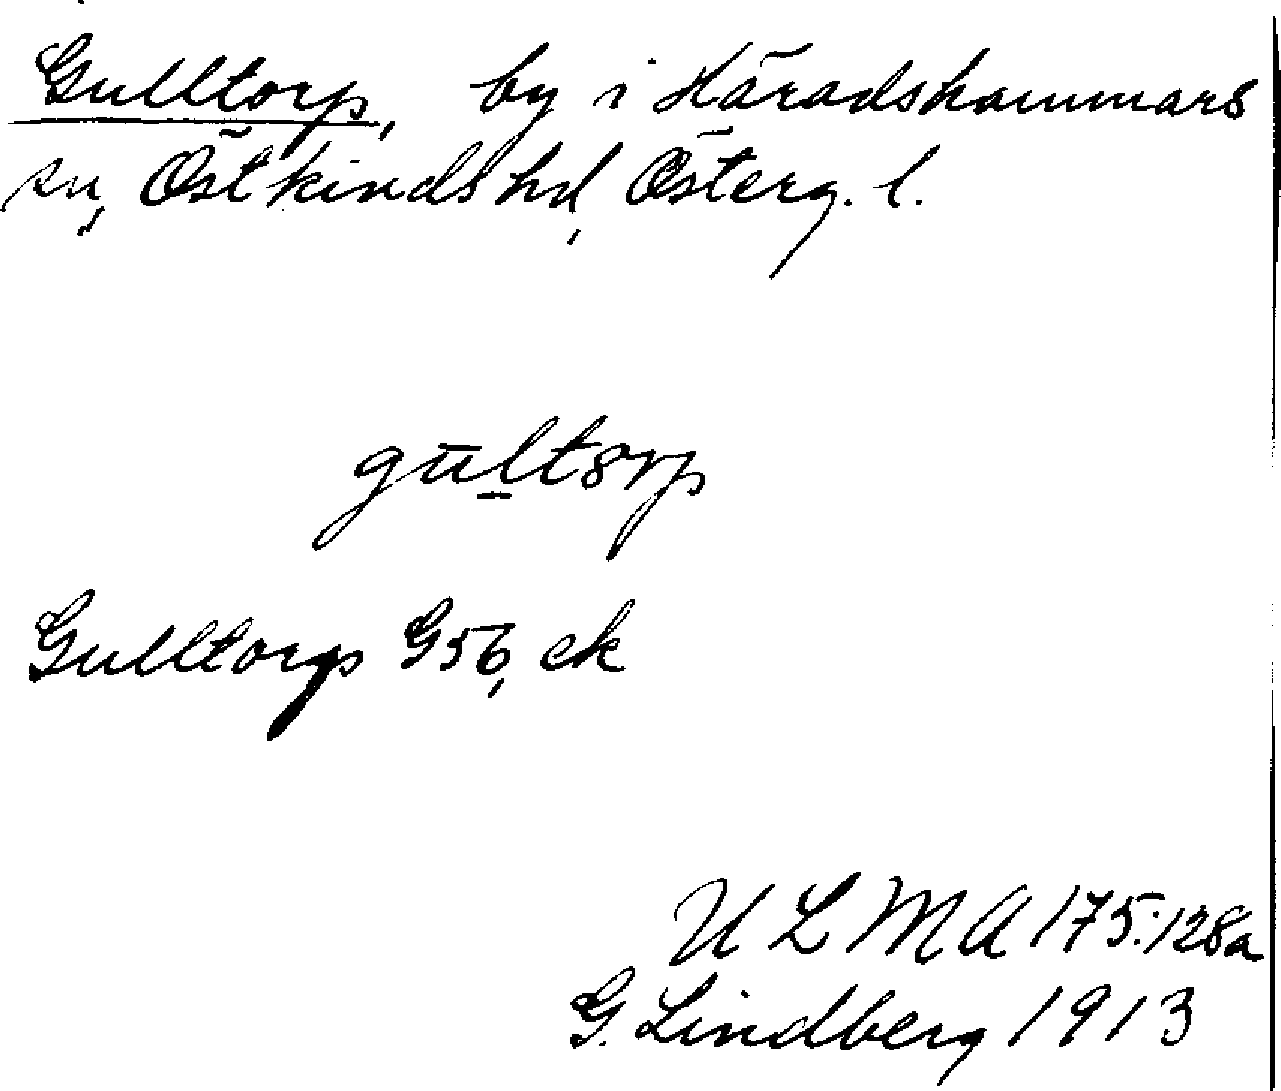 Gulltorp, by i Häradshammars
sn, Östkinds hd, Österg. l.
gūltorp
Gulltorp G56, ek
ULMA 175:128a
G. Lindberg 1913